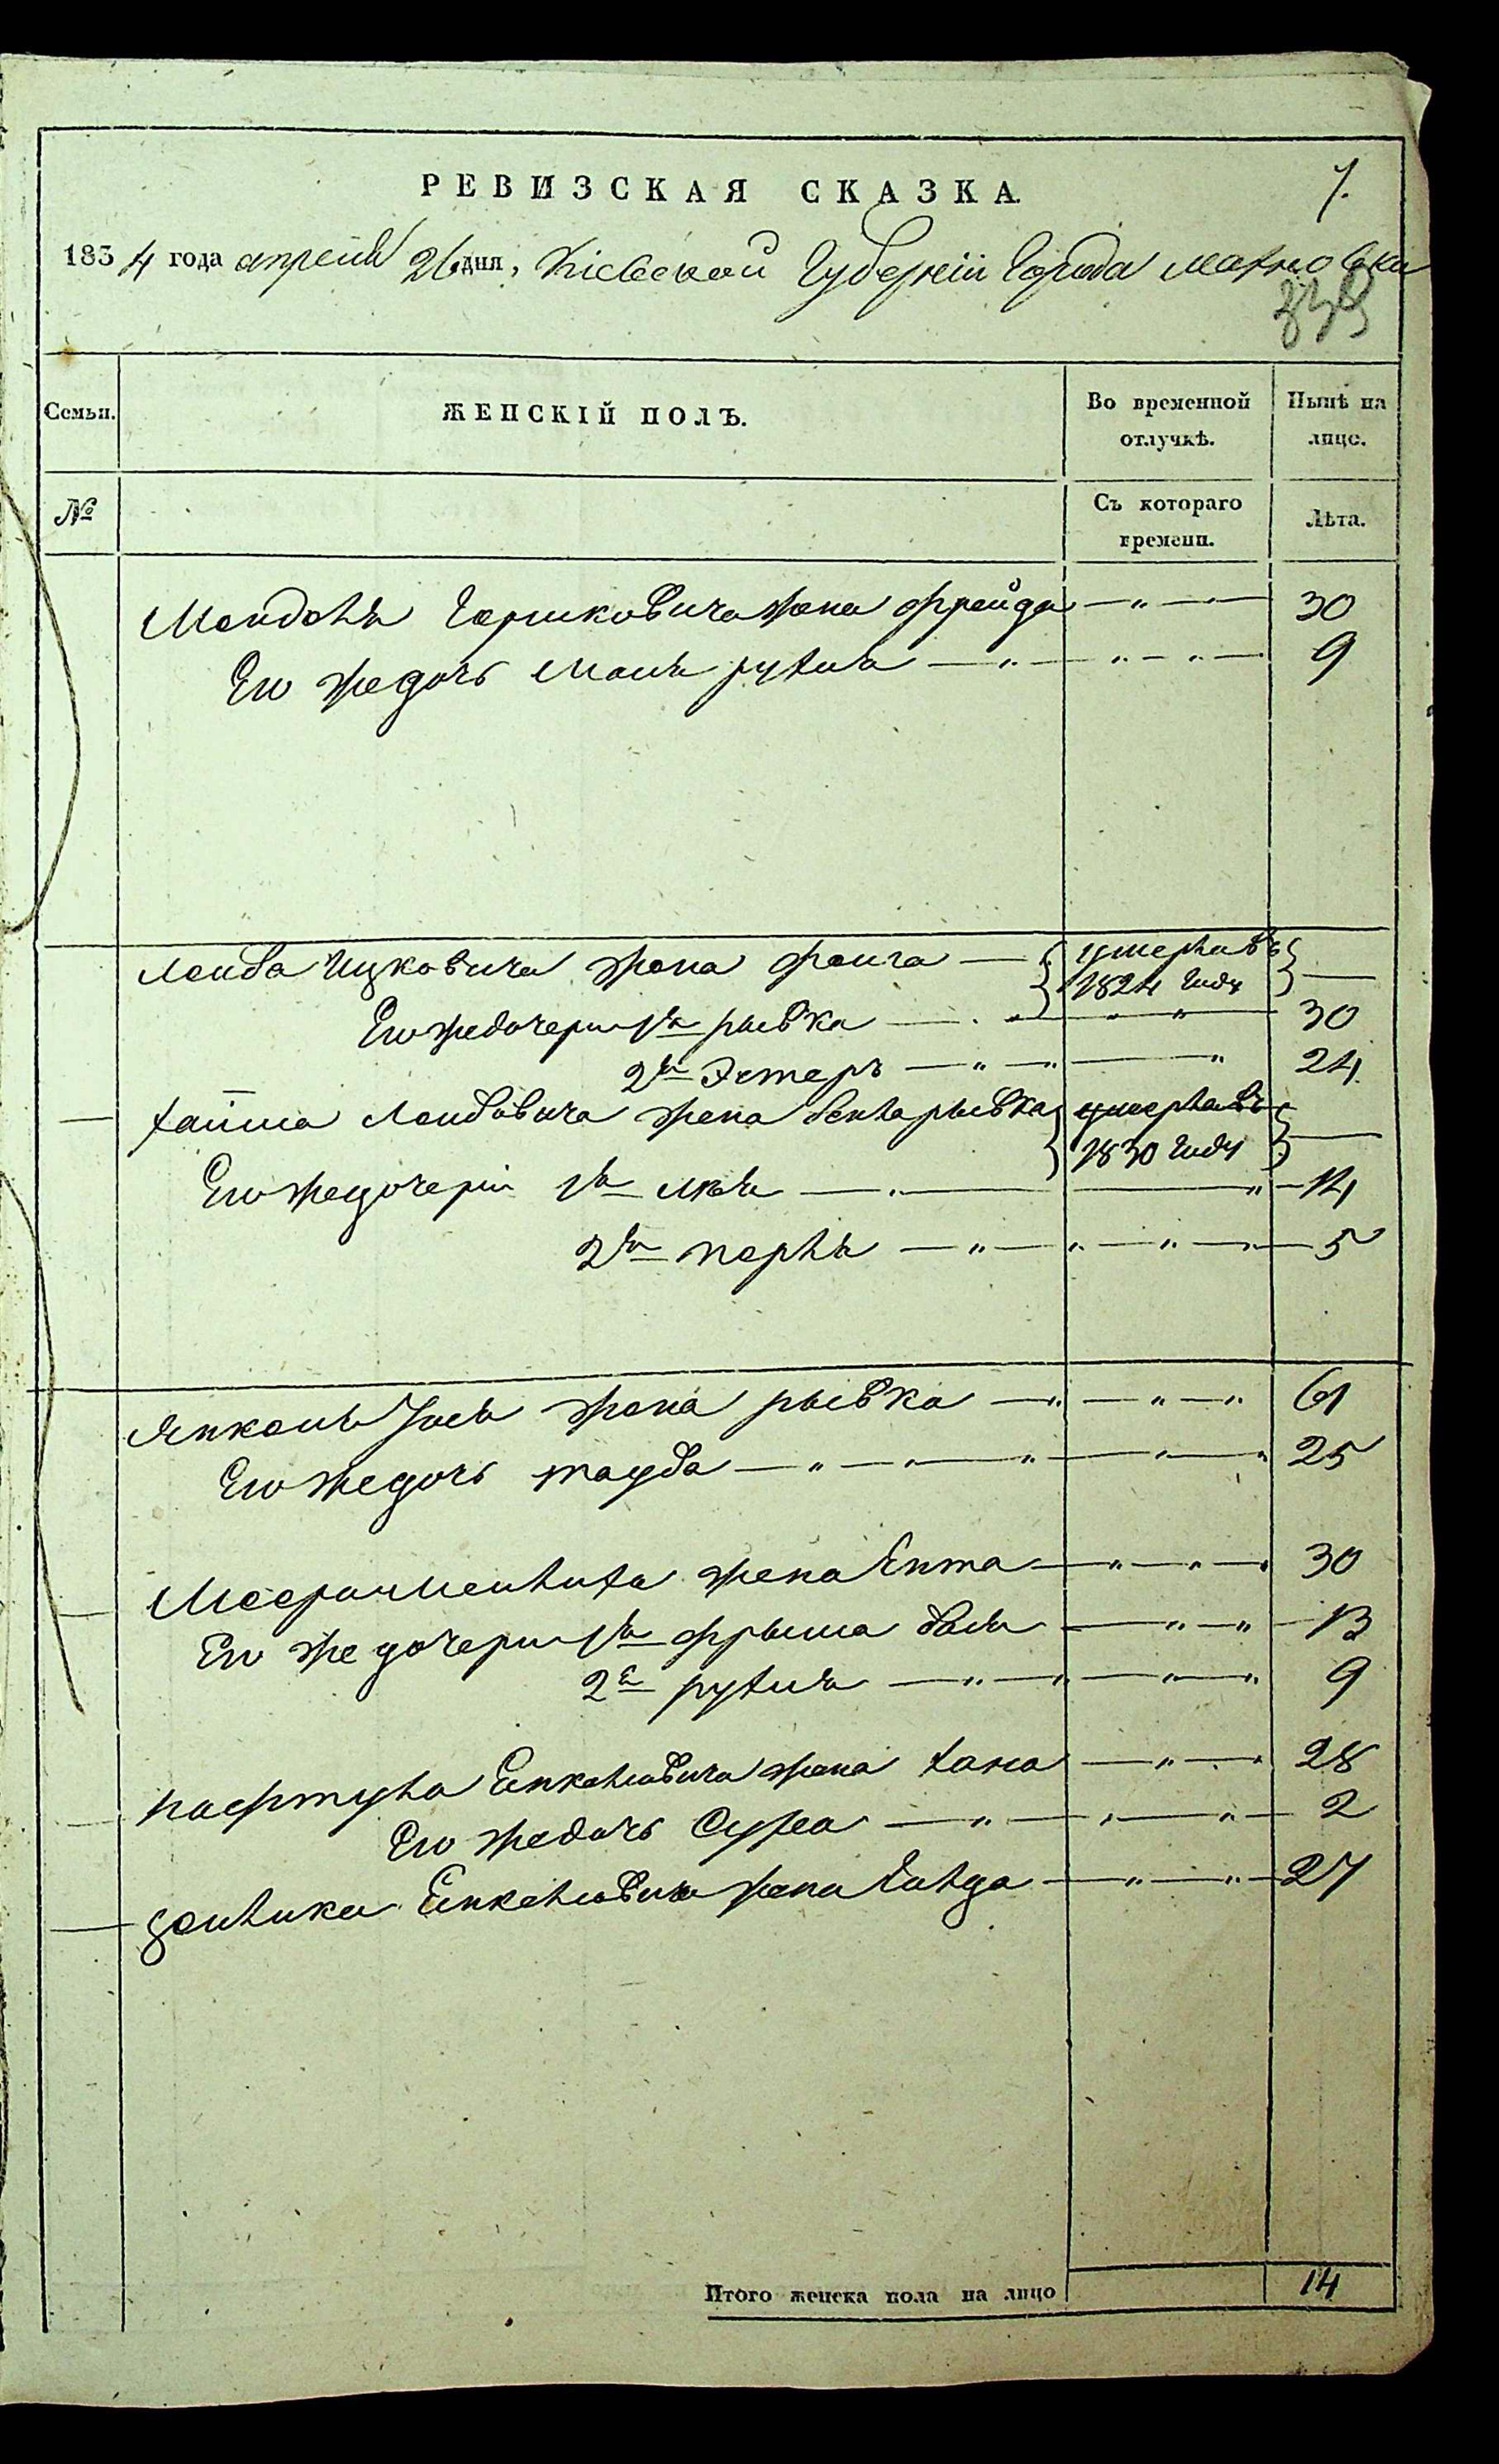 РЕВИЗСКАЯ СКАЗКА.
7.
1834 года апреля 26 дня, Кіевской Губерніи Города Махновки
339
Семьи. ЖЕНСКІЙ ПОЛЪ. Во временной отлучкѣ. Нынѣ на лицо.
№ Съ котораго времени. Лѣта.
Мендель Гершковича жена фрейда 30
Его же дочь Маля рухля 9
Лейба Ицковича жена фейга умерла въ 1824 году
Его же дочери 1я рывка 30
2я Эстеръ 24
хаима Лейбовича жена бейла рывка умерла въ 1830 году
Его же дочери 1я лея 14
2я перля 5
Янкель жена рывка 61
Его же дочь тауба 25
жена Ента 30
Его же дочери 1я фрыма бася 13
2я рухля 9
нафтула Янкелевича жена хана 28
Его же дочь Сура 2
Янкелевича жена голда 27
Итого женска пола на лицо 14